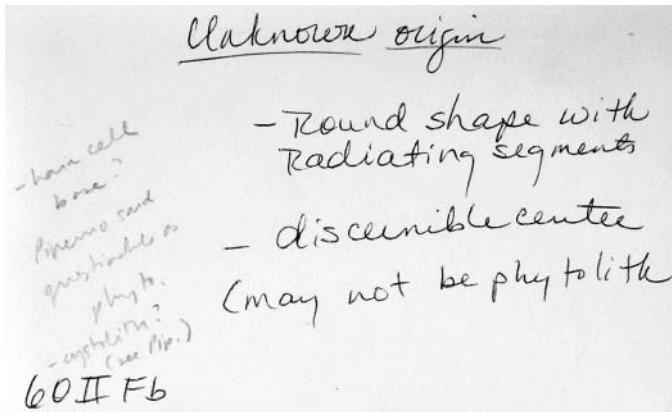 Unknown origin
- Round shape with
Radiating segments
- discernible center
(may not be phytolith
- hair cell
base?
Piperno said
questionable as
phyto.
- cystolith?
(see Pip.)
60 II Fb